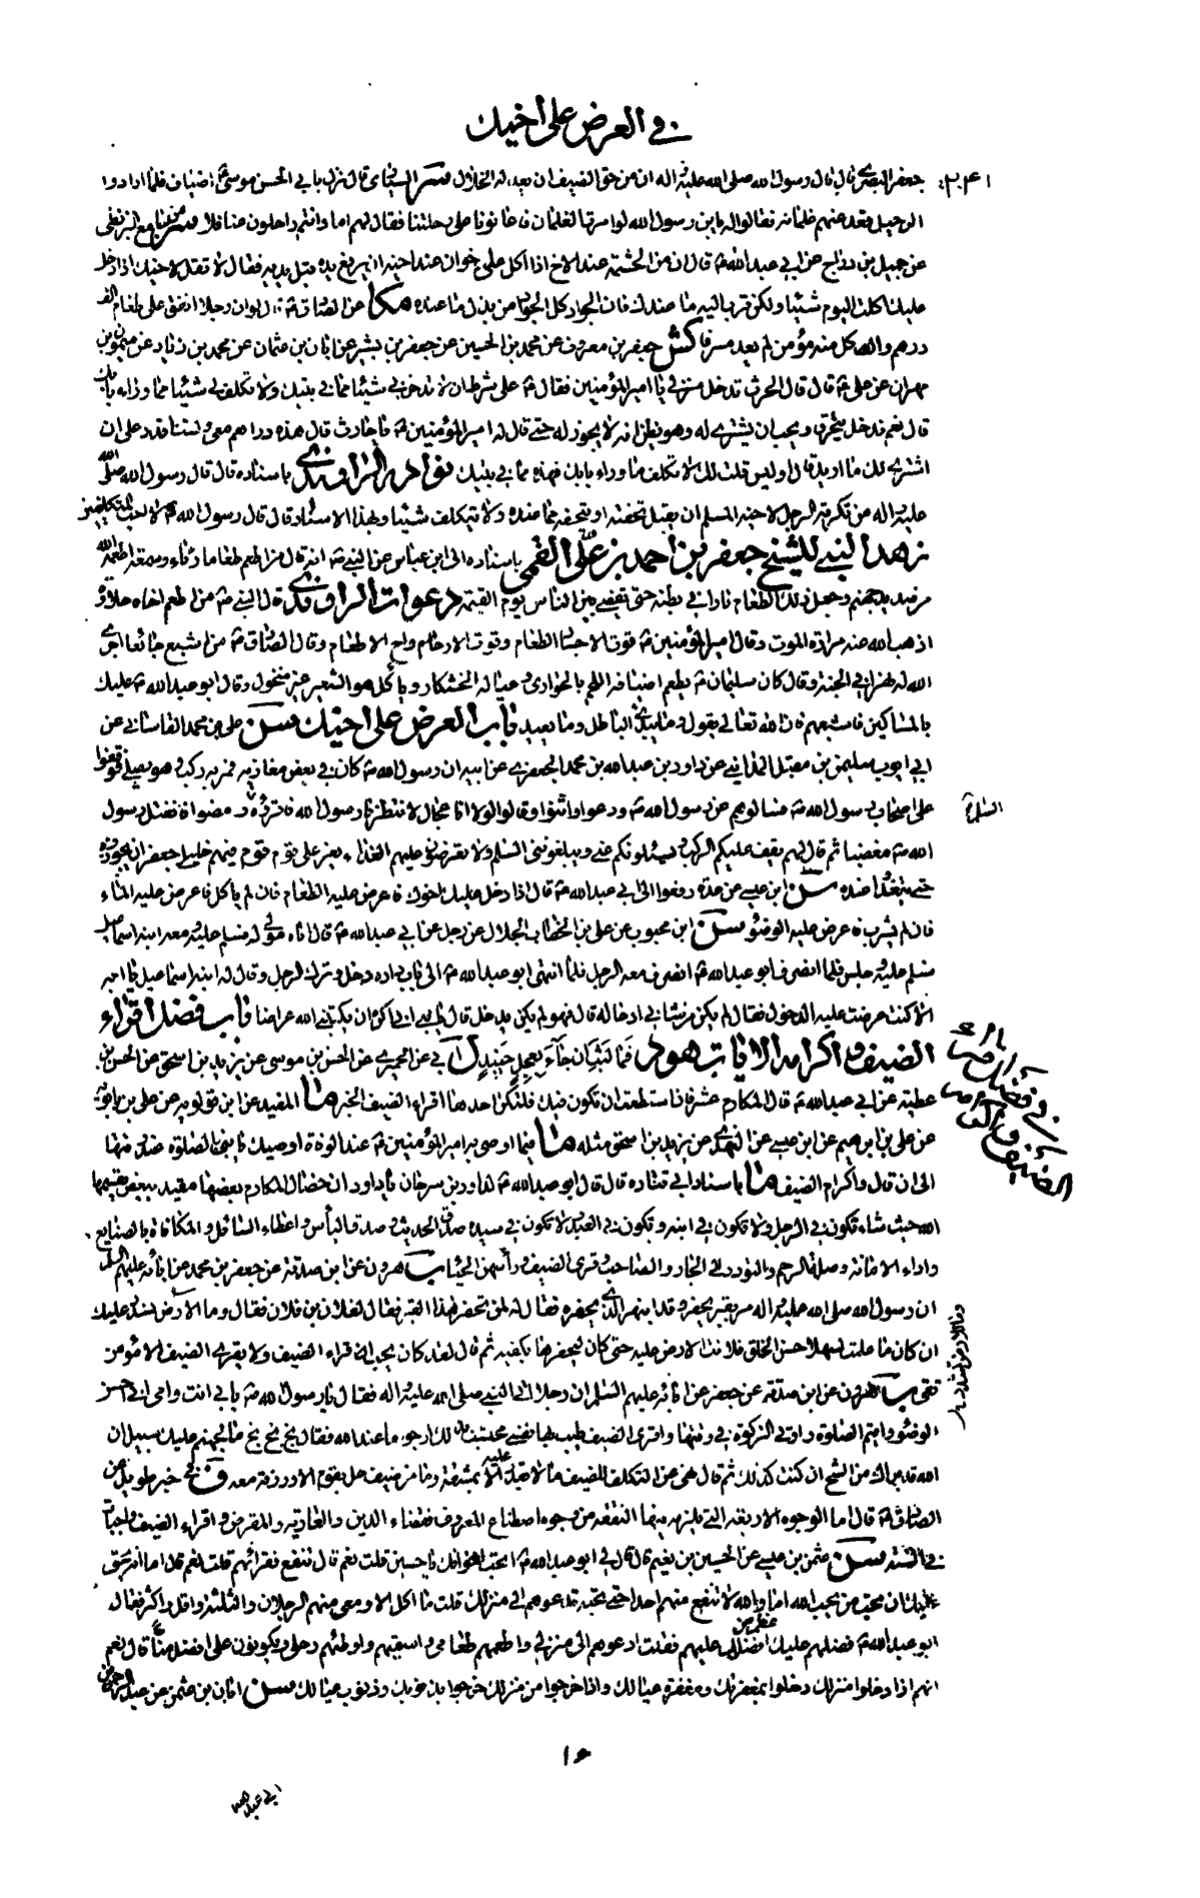 في العرض على أخيك
جعفر البصري قال قال رسول الله صلى الله عليه وآله ان من حق الضيف ان يعد له الخلال قال نزل بابي الحسن موسى اضياف فلما ارادوا
الرحيل قعد عنهم غلمانه فقالوا له يا بن رسول الله لو امرت الغلمان فاعانونا على رحلتنا فقال لهم اما وانتم راحلون عنا فلا
عن جميل بن دراج عن ابي عبد الله ع قال ان من الحشمة عند الاخ اذا اكل على خوان عند اخيه ان يرفع يده قبل يديه فقال لا تقل لاخيك اذا دخل
عليك اكلت اليوم شيئا ولكن قرب اليه ما عندك فان الجواد كل الجواد من بذل ما عنده مكا عن الصادق ع قال لو ان رجلا انفق على طعام الف
درهم واكل منه مؤمن لم يعد مسرفا كش جعفر بن معروف عن محمد بن الحسين عن جعفر بن بشير عن ابان بن عثمان عن محمد بن زياد عن ميمون بن
مهران عن علي ع قال قال الحرث تدخل منزلي يا امير المؤمنين فقال ع على شرط ان لا تدخرني شيئا مما في بيتك ولا تكلف لي شيئا مما وراء بابك
قال نعم فدخل يتحرق ويحب ان يشتري له وهو يظن انه لا يجوز له حتى قال له امير المؤمنين ع يا حارث قال هذه دراهم معي ولست اقدر على ان
اشتري لك ما اريد قال اوليس قلت لك لا تكلف ما وراء بابك فهذه مما في بيتك نوادر الراوندي باسناده قال قال رسول الله صلى الله
عليه وآله من تكرمة الرجل لاخيه المسلم ان يقبل تحفته او يتحفه مما عنده ولا يتكلف شيئا وبهذا الاسناد قال قال رسول الله ص لا احب المتكلفين
زهد النبي للشيخ جعفر بن احمد بن علي القمي باسناده الى ابن عباس عن النبي ص انه قال من اطعم طعاما رئاء وسمعة اطعمه الله
من صديد جهنم وجعل ذلك الطعام نارا في بطنه حتى يقضي بين الناس يوم القيمة دعوات الراوندي قال النبي ص من اطعم اخاه حلاوة
اذهب الله عنه مرارة الموت وقال امير المؤمنين ع قوت الاجساد الطعام وقوت الارواح الاطعام وقال الصادق ع من اشبع جائعا اجرى
الله له نهرا في الجنة وقال كان سليمان ع يطعم اضيافه اللحم بالحوارى وعياله الخشكار ويأكل هو الشعير غير منخول وقال ابو عبد الله ع عليك
بالمساكين فاشبعهم فان الله تعالى يقول وما يبدئ الباطل وما يعيد باب العرض على اخيك سن علي بن محمد القاساني عن
ابي ايوب سليمن بن مقبل المدايني عن داود بن عبد الله بن محمد الجعفري عن ابيه ان رسول الله ص كان في بعض مغازيه فمر به ركب وهو يصلي فوقفوا
على اصحاب رسول الله ص فسالوهم عن رسول الله ص ودعوا واثنوا وقالوا لولا انا عجال لانتظرنا رسول الله فاقرؤه السلام ومضوا فانفتل رسول
الله ص مغضبا ثم قال لهم يقف عليكم الركب ويسئلونكم عني ويبلغونني السلم ولا تعرضون عليهم الغداء يعز على قوم فيهم خليلي جعفر ان يجوزوه
حتى يتغدوا عنده سن ابن عيسى عن عدة رفعوا الى ابي عبد الله ع قال اذا دخل عليك اخوك فاعرض عليه الطعام فان لم ياكل فاعرض عليه الماء
فان لم يشرب فاعرض عليه الوضوء سن ابن محبوب عن علي بن الخطاب الخلال عن رجل عن ابي عبد الله ع قال اتاه مولى له فسلم عليه ومعه ابنه اسمعيل
فسلم عليه وجلس فلما انصرف ابو عبد الله ع انصرف معه الرجل فلما انتهى ابو عبد الله ع الى باب داره دخل وترك الرجل وقال له ابنه اسماعيل يا ابه
الا كنت عرضت عليه الدخول فقال لم يكن من شأني ادخاله قال فهو لم يكن يدخل قال يا بني اني اكره ان يكتبني الله عراضا باب فضل اقراء
الضيف واكرامه الايات هود فما لبث ان جاء بعجل حنيذ ل ابي عن الحميري عن الحسن بن موسى عن يزيد بن اسحق عن الحسن بن
عطية عن ابي عبد الله ع قال المكارم عشر فان استطعت ان تكون فيك فلتكن احدها اقراء الضيف الخبر ما المفيد عن ابن قولويه عن علي بن بابويه
عن علي بن ابراهيم عن ابن عيسى عن النهدي عن يزيد بن اسحق مثله ما فيما اوصى به امير المؤمنين ع عند الوفاة اوصيك يا بني بالصلوة عند وقتها
الى ان قال واكرام الضيف ما باسناد ابي قتادة قال قال ابو عبد الله ع لداود بن سرحان يا داود ان خصال المكارم بعضها مقيد ببعض يقسمها
الله حيث شاء تكون في الرجل ولا تكون في ابنه وتكون في العبد ولا تكون في سيده صدق الحديث وصدق البأس واعطاء السائل والمكافاة بالصنايع
واداء الامانة وصلة الرحم والتودد الى الجار والصاحب وقرى الضيف ورأسهن الحياء ب هرون عن ابن صدقة عن جعفر بن محمد عن ابائه عليهم السلم
ان رسول الله صلى الله عليه وآله مر بقبر يحفر وقد انبهر الذي يحفره فقال له لمن تحفر هذا القبر فقال لفلان بن فلان فقال وما للارض تشدد عليك
ان كان ما علمت لسهلا حسن الخلق فلانت الارض عليه حتى كان ليحفرها بكفيه ثم قال لقد كان يحب اقراء الضيف ولا يقري الضيف الا مؤمن
تقي ب هرون عن ابن صدقة عن جعفر عن ابائه عليهم السلم ان رجلا اتى النبي صلى الله عليه وآله فقال يا رسول الله ص بابي انت وامي اني احسن
الوضوء واقيم الصلوة واوتي الزكوة في وقتها واقري الضيف طيب بها نفسي محتسب بذلك ارجو ما عند الله فقال بخ بخ بخ ما لجهنم عليك سبيل ان
الله قد براك من الشح ان كنت كذلك ثم قال نهى عن التكلف للضيف ما لا يقدر عليه الا بمشقة وما من ضيف حل بقوم الا ورزقه معه ف في خبر طويل عن
الصادق ع قال اما الوجوه الاربعة التي يلزمه فيها النفقة من وجوه اصطناع المعروف فقضاء الدين والعارية والقرض واقراء الضيف واجبات
في السنة سن عثمن بن عيسى عن الحسين بن نعيم قال قال لي ابو عبد الله ع اتحب اخوانك يا حسين قلت نعم قال تنفع فقرائهم قلت نعم قال اما انه يحق
عليك ان تحب من يحب الله اما والله لا تنفع منهم احدا حتى تحبه تدعوهم الى منزلك قلت ما اكل الا ومعي منهم الرجلان والثلثة واقل واكثر فقال
ابو عبد الله ع فضلهم عليك اعظم من فضلك عليهم فقلت ادعوهم الى منزلي واطعمهم طعامي واسقيهم واوطئهم رحلي ويكونون علي افضل منا قال نعم
انهم اذا دخلوا منزلك دخلوا بمغفرتك ومغفرة عيالك واذا خرجوا من منزلك خرجوا بذنوبك وذنوب عيالك سن ابان بن عثمن عن عبد الرحمن بن
السلام
وما للارض تشدد
١٥
ابي عبد الله